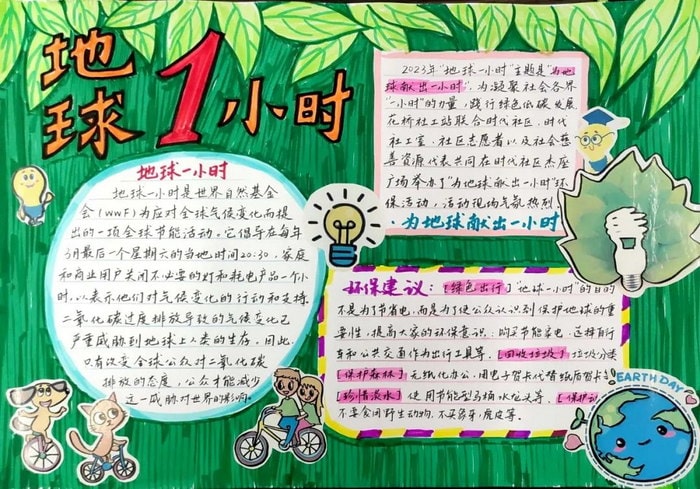 地球1小时
地球一小时
地球一小时是世界自然基金
会(WWF)为应对全球气候变化而提
出的一项全球节能活动。它倡导在每年
3月最后一个星期六的当地时间20:30,家庭
和商业用户关闭不必要的灯和耗电产品一个小
时,以表示他们对气候变化的行动和支持。
二氧化碳过度排放导致的气候变化已
严重威胁到地球上人类的生存。因此,
只有改变全球公众对二氧化碳
排放的态度,公众才能减少
这一威胁对世界的影响。
2023年"地球一小时"主题是"为地
球献出一小时",为凝聚社会各界
"一小时"的力量,践行绿色低碳发展,
花桥社工站联合时代社区、时代
社工室、社区志愿者以及社会慈
善资源代表共同在时代社区杰座
广场举办了"为地球献出一小时"环
保活动,活动现场气氛热烈
·为地球献出一小时
环保建议:[绿色出行]"地球一小时"的目的
不是为了节省电,而是为了使公众认识到保护地球的重
要性,提高大家的环保意识。购买节能家电,选择自行
车和公共交通作为出行工具等。[回收垃圾]垃圾分类
[保护森林]无纸化办公,用电子贺卡代替纸质贺卡
[珍惜淡水]使用节能型马桶、水龙头等。[保护动
不要食用野生动物,不买象牙、虎皮等。
EARTH DAY